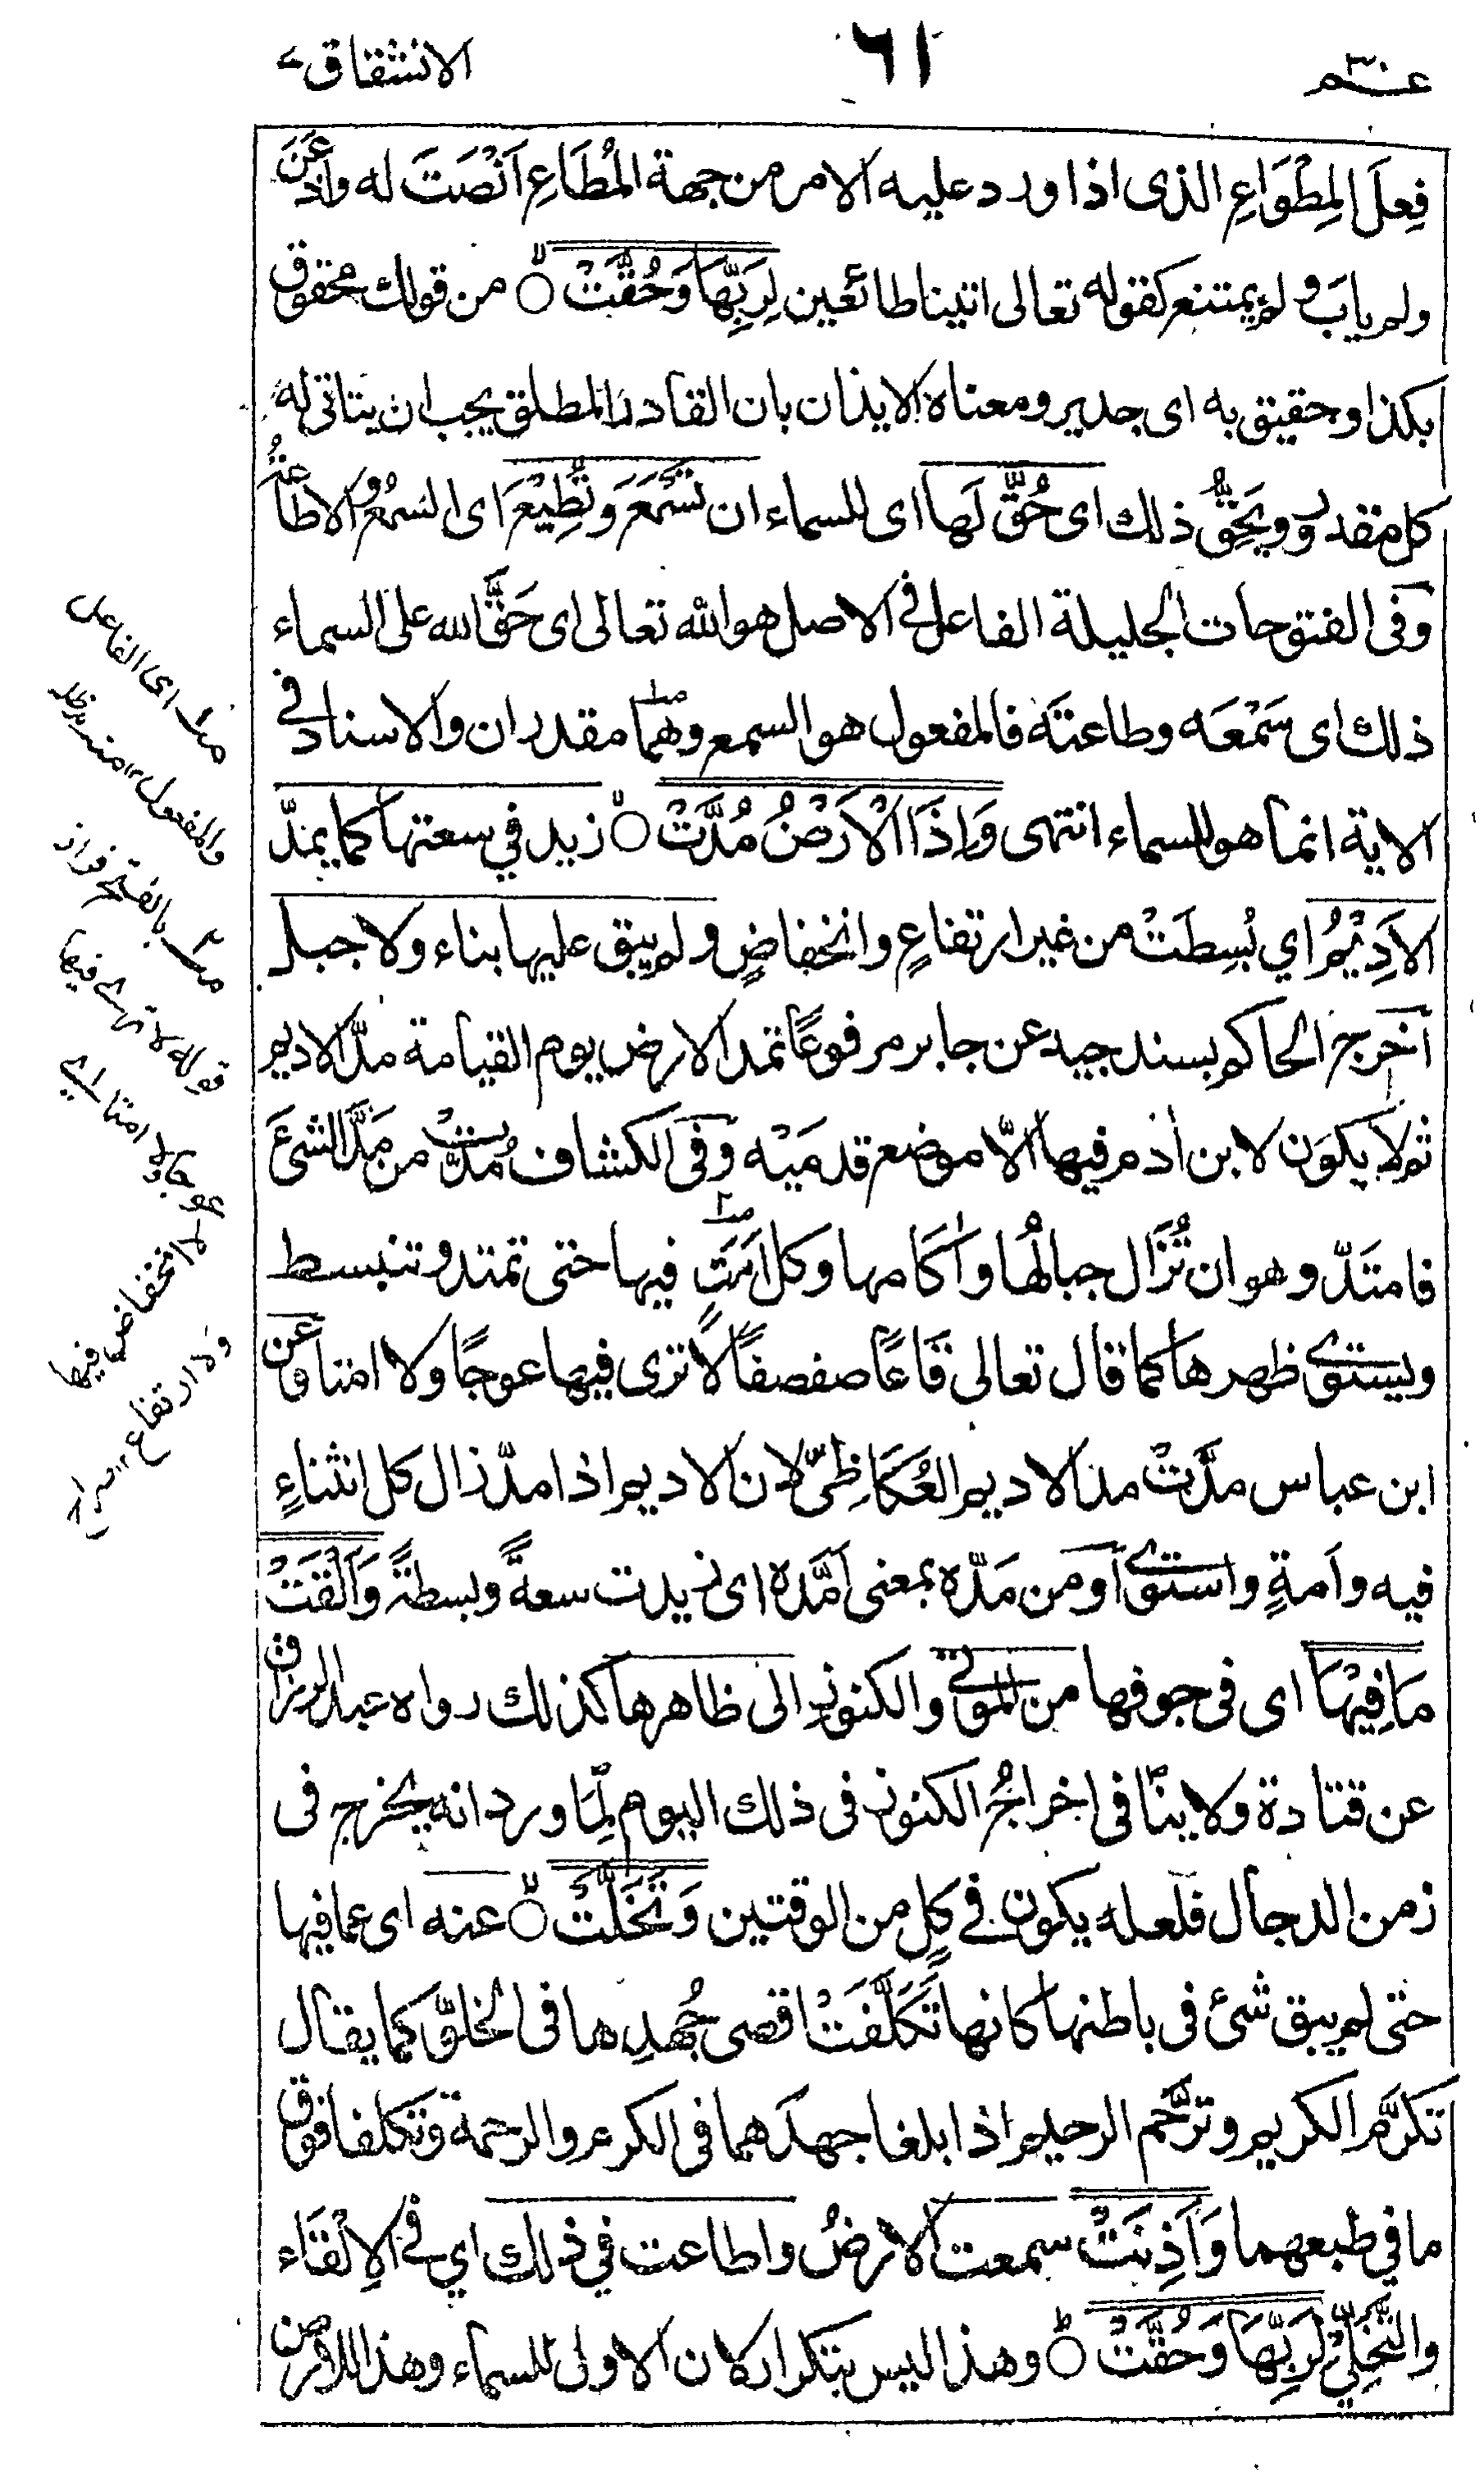 عم ٣٠
٦١
الانشقاق
فِعلَ المِطْوَاعِ الذى اذا ورد عليه الامر من جهة المُطَاعِ اَنْصَتَ له واذعَنَ
ولم يابَ ولم يمتنع كقوله تعالى اتينا طائعين لِرَبِّهَا وَحُقَّتْ ۝ من قولك محقوق
بكذا وحقيق به اى جدير ومعناه الايذان بان القادر المطلق يجب ان يتاتى له
كل مقدور ويَحِقُّ ذلك اى حُقَّ لَها اى للسماء ان تَسْمَعَ وتُطِيْعَ اى السَمْعُ والاطاعَةُ
وفى الفتوحات الجليلة الفاعل فى الاصل هو الله تعالى اى حَقَّ الله على السماء
ذلك اى سَمْعَه وطاعتَه فالمفعول هو السمع وهما مقدران والاسناد فى
الاية انما هو للسماء انتهى وَاِذَا الْاَرْضُ مُدَّتْ ۝ زيد في سعتها كما يمدّ
الاَدِيْمُ اي بُسِطَتْ من غير ارتفاعٍ وانخفاضٍ ولم يبق عليها بناء ولا جبل
اَخرج الحاكم بسند جيد عن جابر مرفوعًا تمد الارض يوم القيامة مدّ الاديم
ثم لا يكون لابن اٰدم فيها الّا موضع قدمَيْه وفى الكشاف مُدَّتْ من مَدَّ الشئَ
فامتَدَّ وهو ان تُزَال جبالُها واٰكامها وكل اَمْتٍ فيها حتى تمتد وتنبسط
ويستوى ظهرها كما قال تعالى قاعًا صفصفًا لا ترى فيها عوجًا ولا امتا وعن
ابن عباس مدَّتْ مد الاديم العُكَاظِىّ لان الاديم اذا مدّ زال كل انثناءٍ
فيه واَمتٍ واستوى اَو من مَدّه بمعنى اَمَّده اى زيدت سعةً وبسطةً وَاَلْقَتْ
مَا فِيْهَا اى فى جوفها من الموتى والكنوز الى ظاهرها كذلك رواه عبد الرزاق
عن قتادة ولا ينافى اخراجُ الكنوز فى ذلك اليوم لِمَا ورد انه يخرج فى
زمن الدجال فلعله يكون فى كلٍ من الوقتين وَتَخَلَّتْ ۝ عنه اى عما فيها
حتى لم يبق شئ فى باطنها كانها تَكَلَّفَتْ اقصى جُهدِها فى الخلوّ كما يقال
تكرّم الكريم وترحّم الرحيم اذا بلغا جهدَهما فى الكرم والرحمة وتكلفا فوق
ما في طبعهما وَاَذِنَتْ سمعت الارضُ واطاعت في ذلك اي في الاِلْقاء
والتَخلِّيْ لِرَبِّهَا وَحُقَّتْ ۝ وهذا ليس بتكرار كان الاولى للسماء وهذا للارض
اى الفاعل
والمفعول ١٢ منه مدظله
بالفتح فراز
قوله لا ترى فيها
عوجا ولا امتا اے
لا انخفاض فيها
ولا ارتفاع ١٢